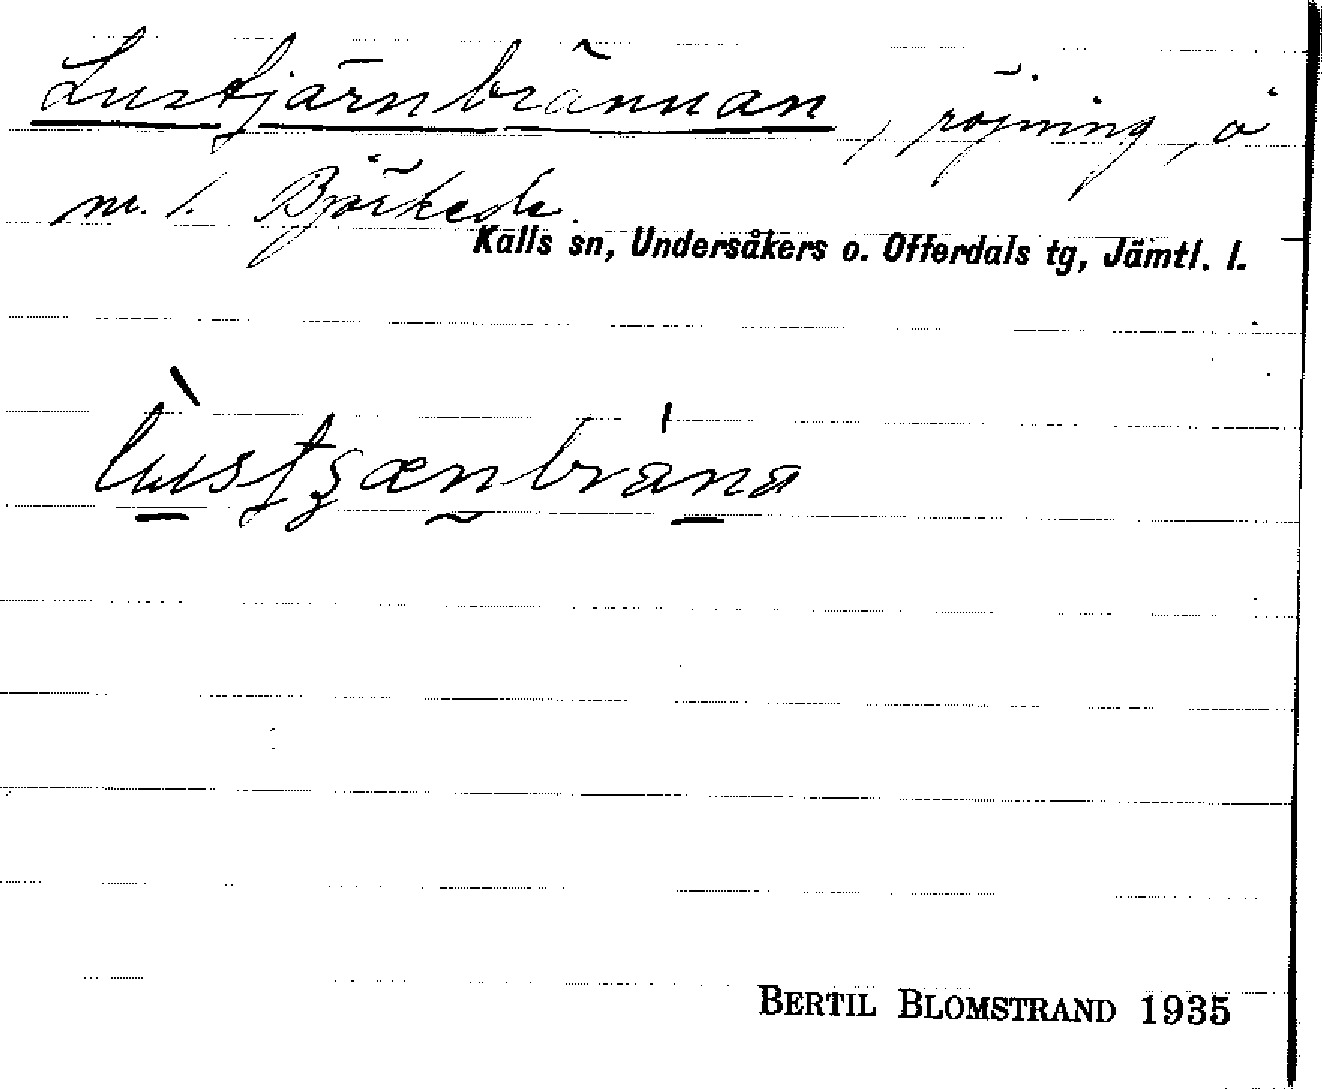 Lustjärnbrännan, röjning, å
nr. 1. Björkede.
Kalls sn, Undersåkers o. Offerdals tg, Jämtl. l.
BERTIL BLOMSTRAND 1935